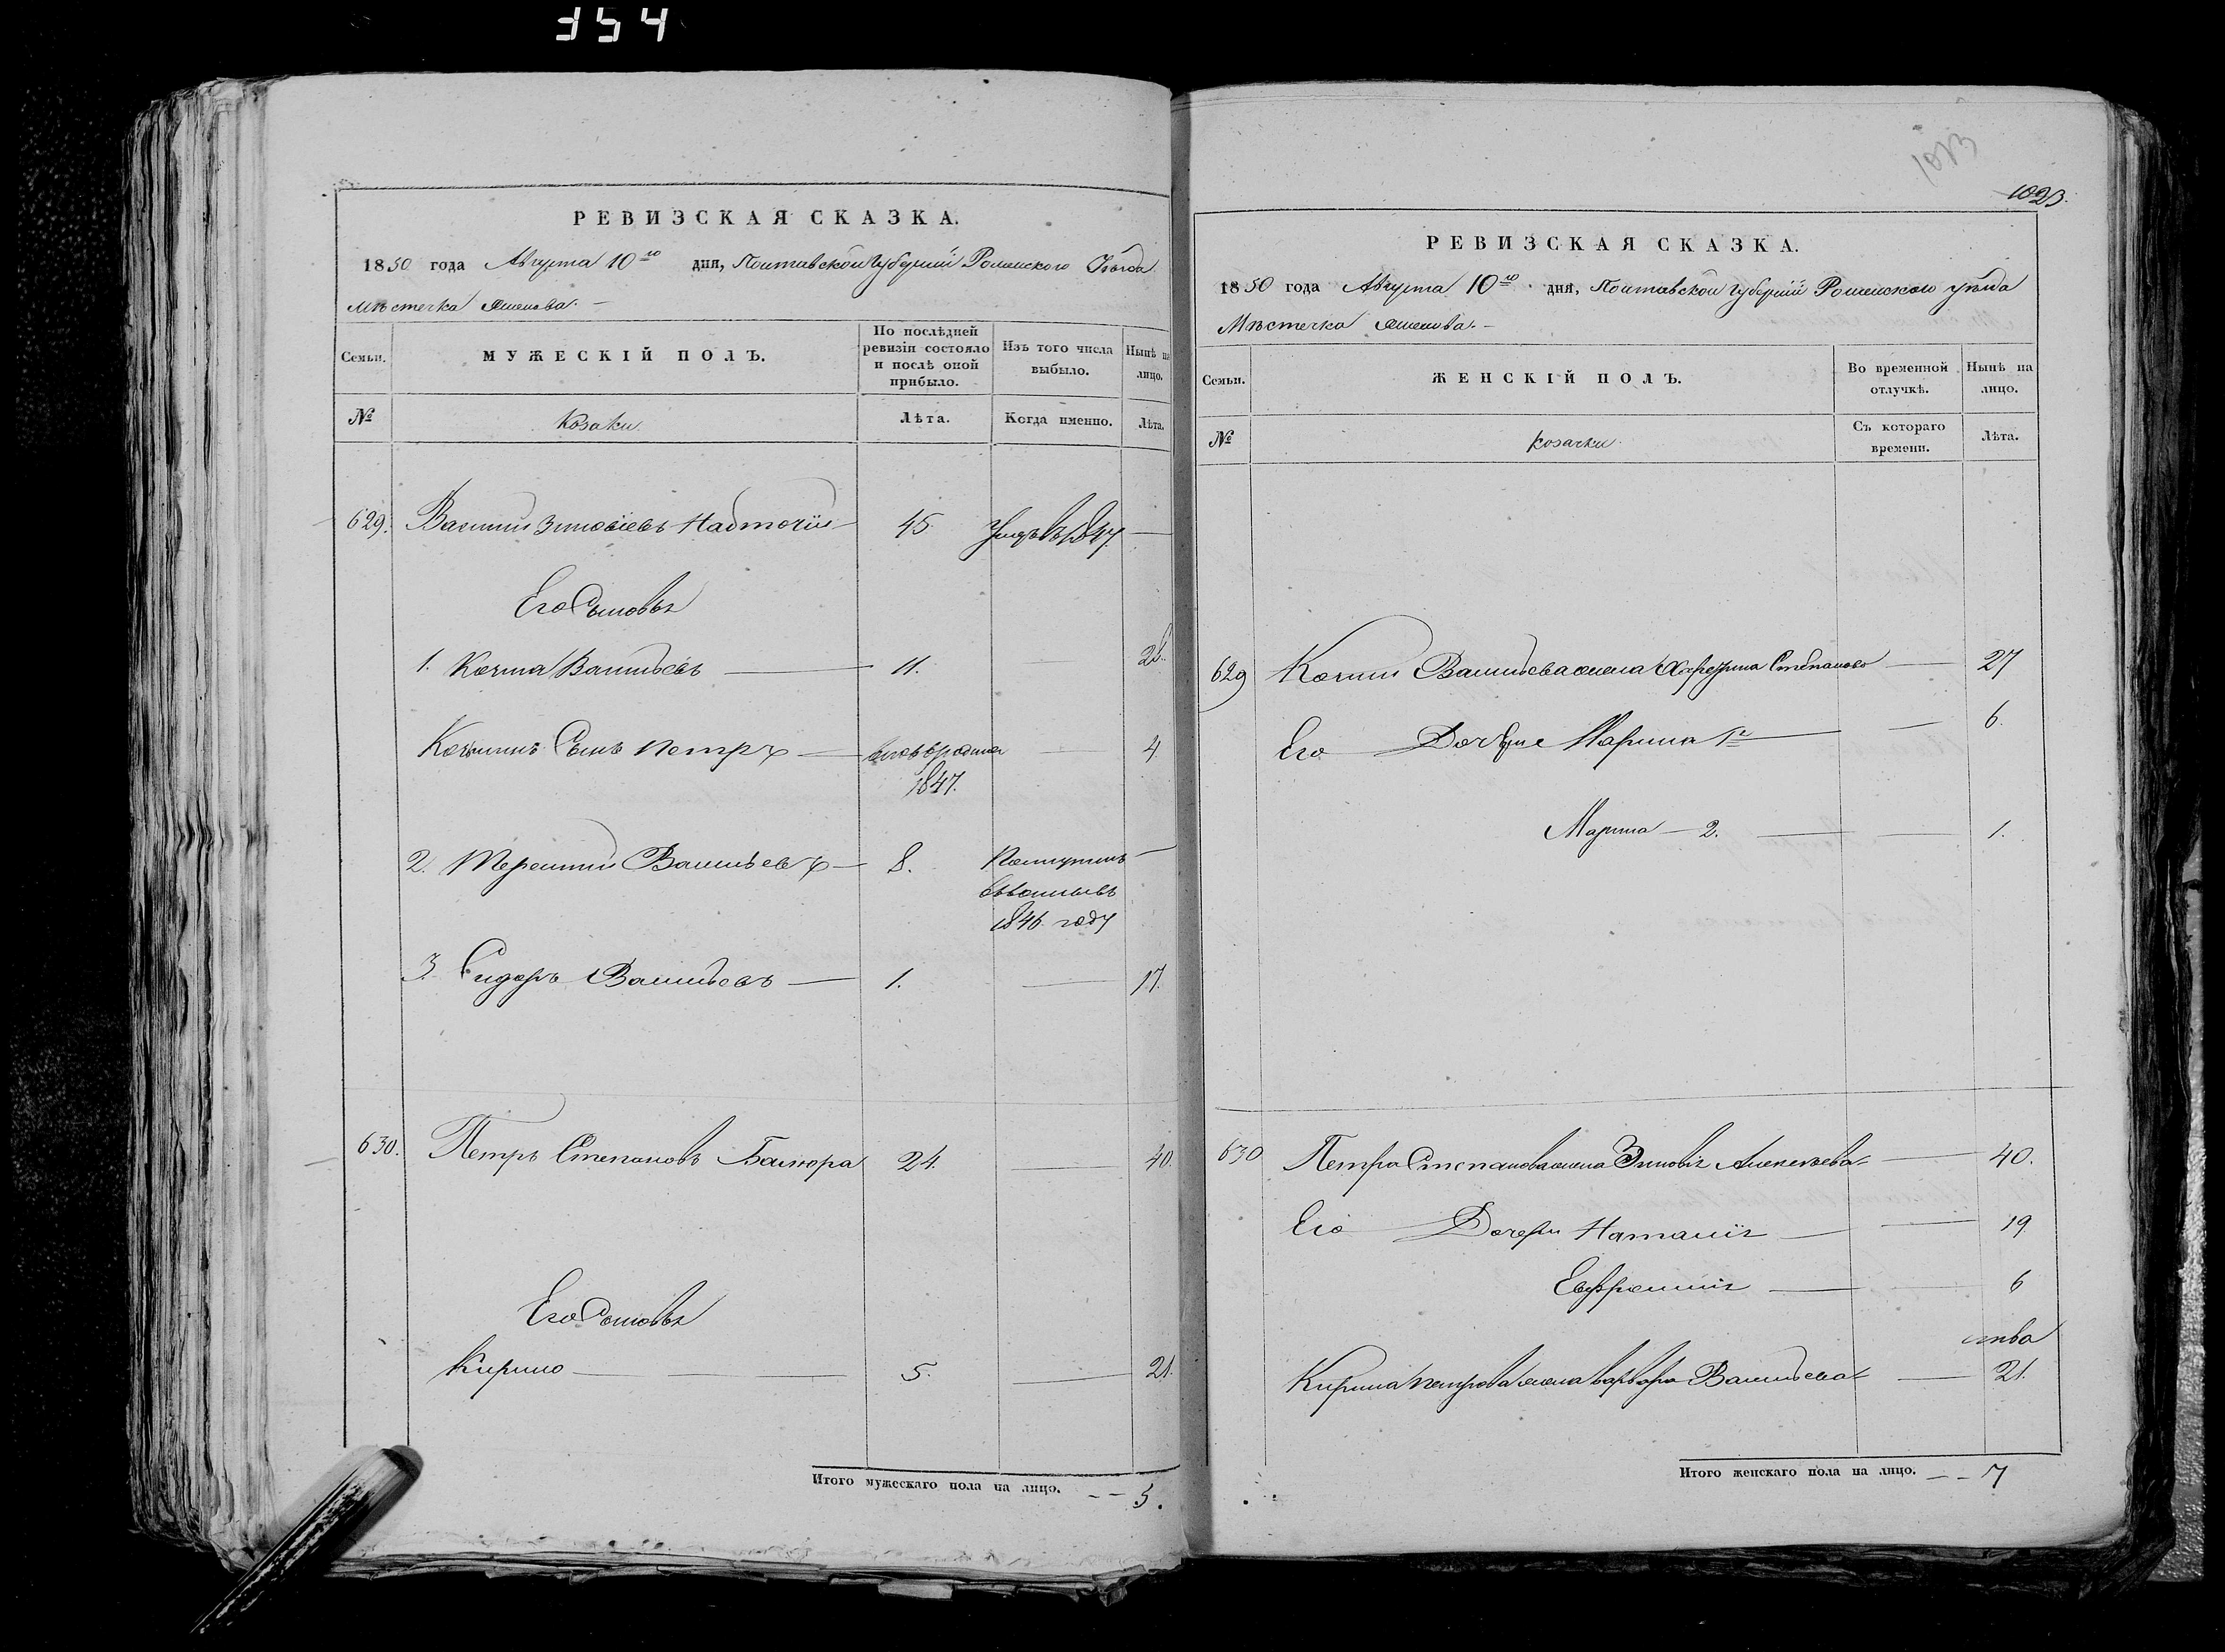 354
РЕВИЗСКАЯ СКАЗКА.
1850 года Августа 10го дня, Полтавской Губерніи Роменского Уѣзда
Мѣстечка
Семьи.
МУЖЕСКІЙ ПОЛЪ.
По послѣдней ревизіи состояло и послѣ оной прибыло.
Изъ того числа выбыло.
Нынѣ на лицо.
№
Козаки.
Лѣта.
Когда именно.
Лѣта.
629. Василий Зиновіевъ Надточій 45. 1847. —
Его Сыновья
1. Козма Васильевъ — 11.
Козминъ Сынъ Петръ — 4
1847.
2. Терентий Васильевъ — 8. —
1846 году
3. Сидоръ Васильевъ — 1. — 17.
630. Петръ Степановъ 24. — 40.
Его Сыновья
Кирило — 5. — 21.
Итого мужескаго пола на лицо. — — 5.
1023
1023.
РЕВИЗСКАЯ СКАЗКА.
1850 года Августа 10го дня, Полтавской Губерніи Роменского уѣзда
Мѣстечка
Семьи.
ЖЕНСКІЙ ПОЛЪ.
Во временной отлучкѣ.
Нынѣ на лицо.
№
козачки
Съ котораго времени.
Лѣта.
629 Козмы Васильева жена Степанова — 27
Его Марина 1я — — 6.
Марина — 2. — — 1.
630 Петра Степанова жена Зиновія Алексѣева — 40.
Его Дочери Наталія — — 19
Евфросинія — — 6
Кирила Петрова жена Варвара Васильева — 21.
Итого женскаго пола на лицо. — — 7